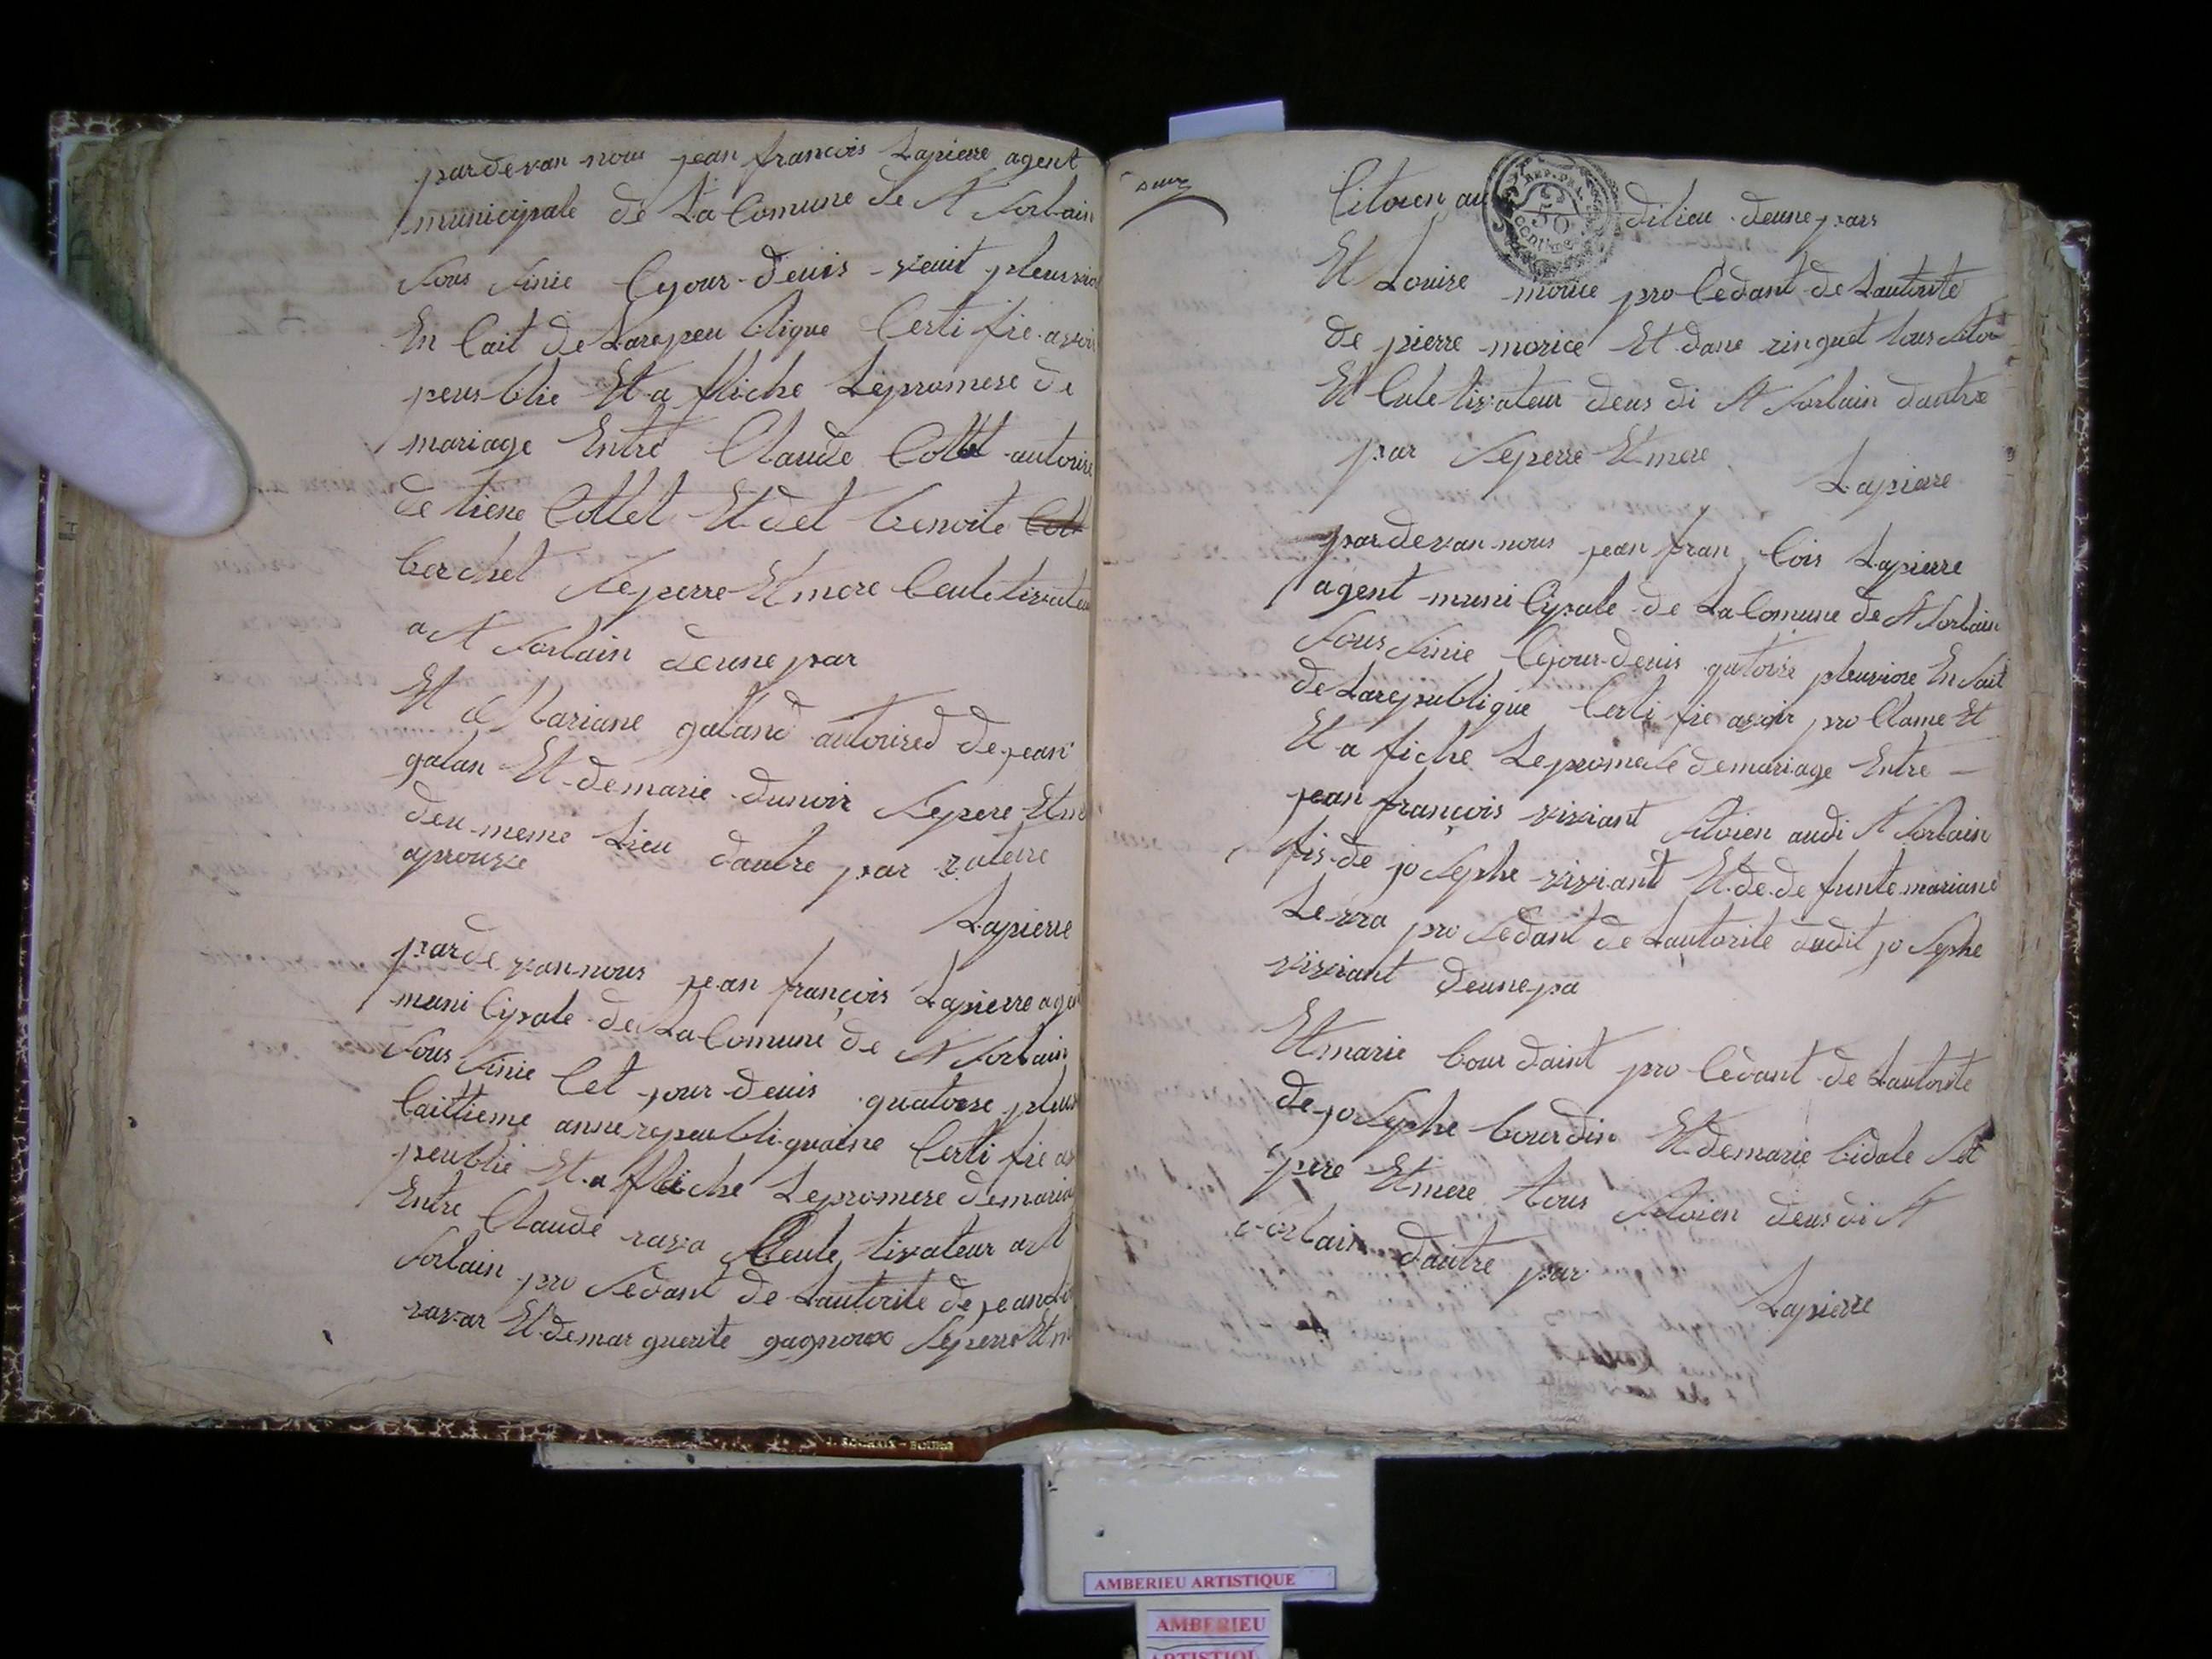 pardevan nous jean francois Lapierre agent
municipale de La Comune de St Sorlain
Sous Sinie Cejour deuis vieuit pleuvio
En Cait de Larepeu blique Certi fie avoir
peus blie Et a fliche Lepromese de
mariage Entre Claude Collet autorise
de tiene Collet Et det benoite
berchet Seperre Et mere Ceuletivateu
a St Sorlain deune par
Et Mariane galand autorised de jean
galan Et demarie dunoir Sepere Et m
deu meme Lieu dautre par rateure
aprouve
Lapierre
parde van nous jean françois Lapierre agen
muni Cipale de La Comune de St Sorlain
Sous Sinie Cet jour deuis quatorse pleuv
Caittieme anne repeubli quaine Certi fie av
peublie Et a fliche Lepromese demaria
Entre Claude rava Ceule tivateur a St
Sorlain pro Sedant de Lautorite de jean
ravar Et demar guerite gagnoux Seperre Et m
suiv
Citoien au dilieu deune pars
REP. FRA.
50
CENTIMES
Et Louise morice pro Cedant de Lautorite
de pierre morice Et dane ringuet tous Sitoi
Et Culetivateur deus di St Sorlain dautre
par Seperre Et mere
Lapierre
pardevan nous jean fran Cois Lapierre
agent muni Cipale de La Comune de St Sorlain
Sous Sinie Cejour deuis qatorse pleuviose En Sait
de Larepublique Certi fie avoir pro Clame Et
Et a fiche Lepromese demariage Entre
jean françois viviant Sitoien audi St Sorlain
fis de jo Sephe viviant Et de de funte mariane
Lerra pro Sedant de Lautorite dudit jo Sephe
viviant deunepa
Et marie bour daint pro Cedant de Lautorite
de jo Sephe bourdin Et demarie bidale Set
pere Et mere tous Sitoien deus di St
Sorlain dautre par
Lapierre
AMBERIEU ARTISTIQUE
AMBERIEU
ARTISTIQU